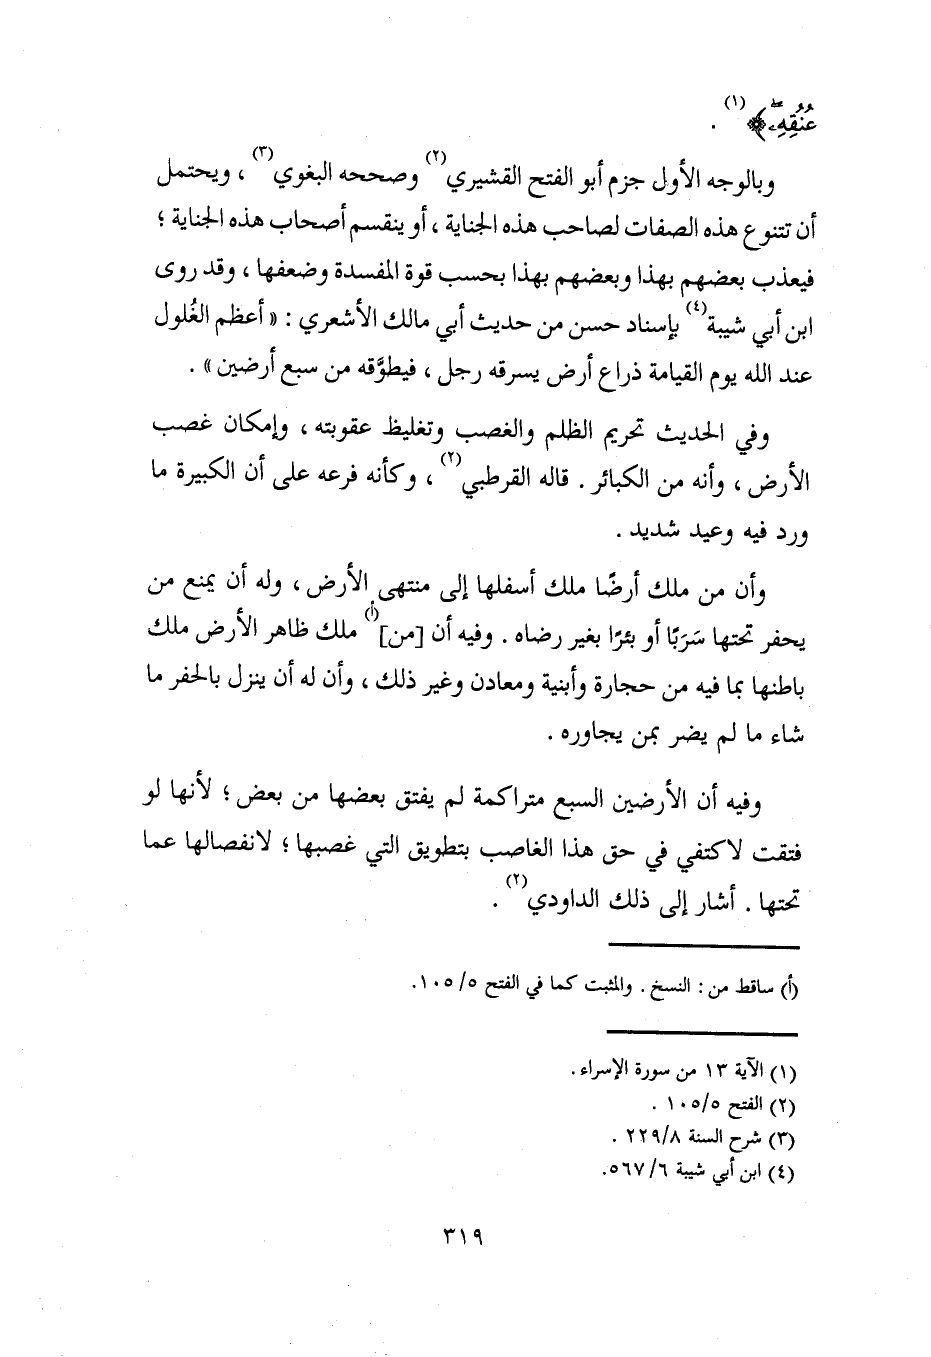 عُنُقِهِۦ﴾(١) .
وبالوجه الأول جزم أبو الفتح القشيري(٢) وصححه البغوي(٣) ، ويحتمل
أن تتنوع هذه الصفات لصاحب هذه الجناية ، أو ينقسم أصحاب هذه الجناية ؛
فيعذب بعضهم بهذا وبعضهم بهذا بحسب قوة المفسدة وضعفها ، وقد روى
ابن أبي شيبة(٤) بإسناد حسن من حديث أبي مالك الأشعري : « أعظم الغُلول
عند الله يوم القيامة ذراع أرض يسرقه رجل ، فيطوَّقه من سبع أرضين » .
وفي الحديث تحريم الظلم والغصب وتغليظ عقوبته ، وإمكان غصب
الأرض ، وأنه من الكبائر . قاله القرطبي(٢) ، وكأنه فرعه على أن الكبيرة ما
ورد فيه وعيد شديد .
وأن من ملك أرضًا ملك أسفلها إلى منتهى الأرض ، وله أن يمنع من
يحفر تحتها سَرَبًا أو بئرًا بغير رضاه . وفيه أن [من](أ) ملك ظاهر الأرض ملك
باطنها بما فيه من حجارة وأبنية ومعادن وغير ذلك ، وأن له أن ينزل بالحفر ما
شاء ما لم يضر بمن يجاوره .
وفيه أن الأرضين السبع متراكمة لم يفتق بعضها من بعض ؛ لأنها لو
فتقت لاكتفي في حق هذا الغاصب بتطويق التي غصبها ؛ لانفصالها عما
تحتها . أشار إلى ذلك الداودي(٢) .
(أ) ساقط من : النسخ . والمثبت كما في الفتح ٥/ ١٠٥.
(١) الآية ١٣ من سورة الإسراء .
(٢) الفتح ١٠٥/٥ .
(٣) شرح السنة ٢٢٩/٨ .
(٤) ابن أبي شيبة ٦/ ٥٦٧.
٣١٩